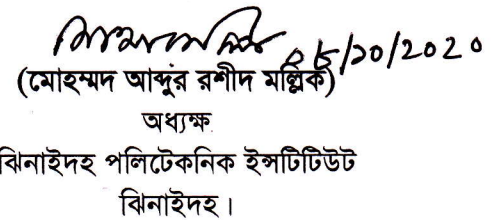 ০৮/১০/২০২০
(মোহম্মদ আব্দুর রশীদ মল্লিক)
অধ্যক্ষ
ঝিনাইদহ পলিটেকনিক ইন্সটিটিউট
ঝিনাইদহ।